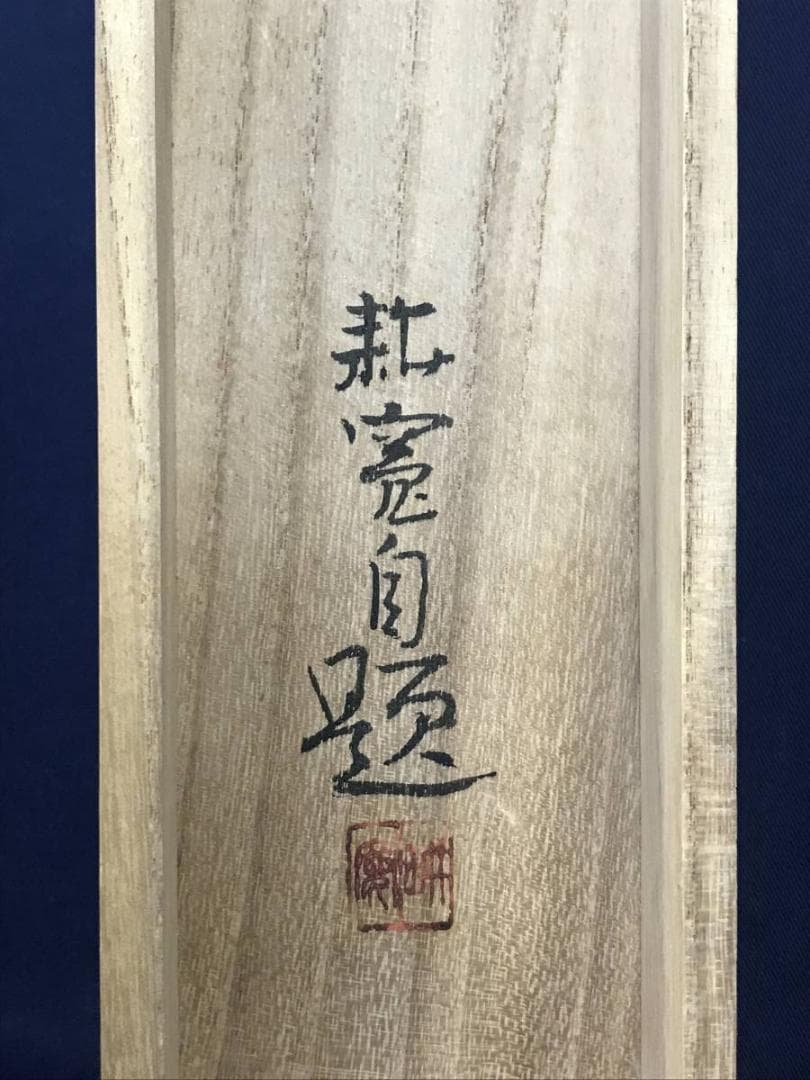 耕寛自題